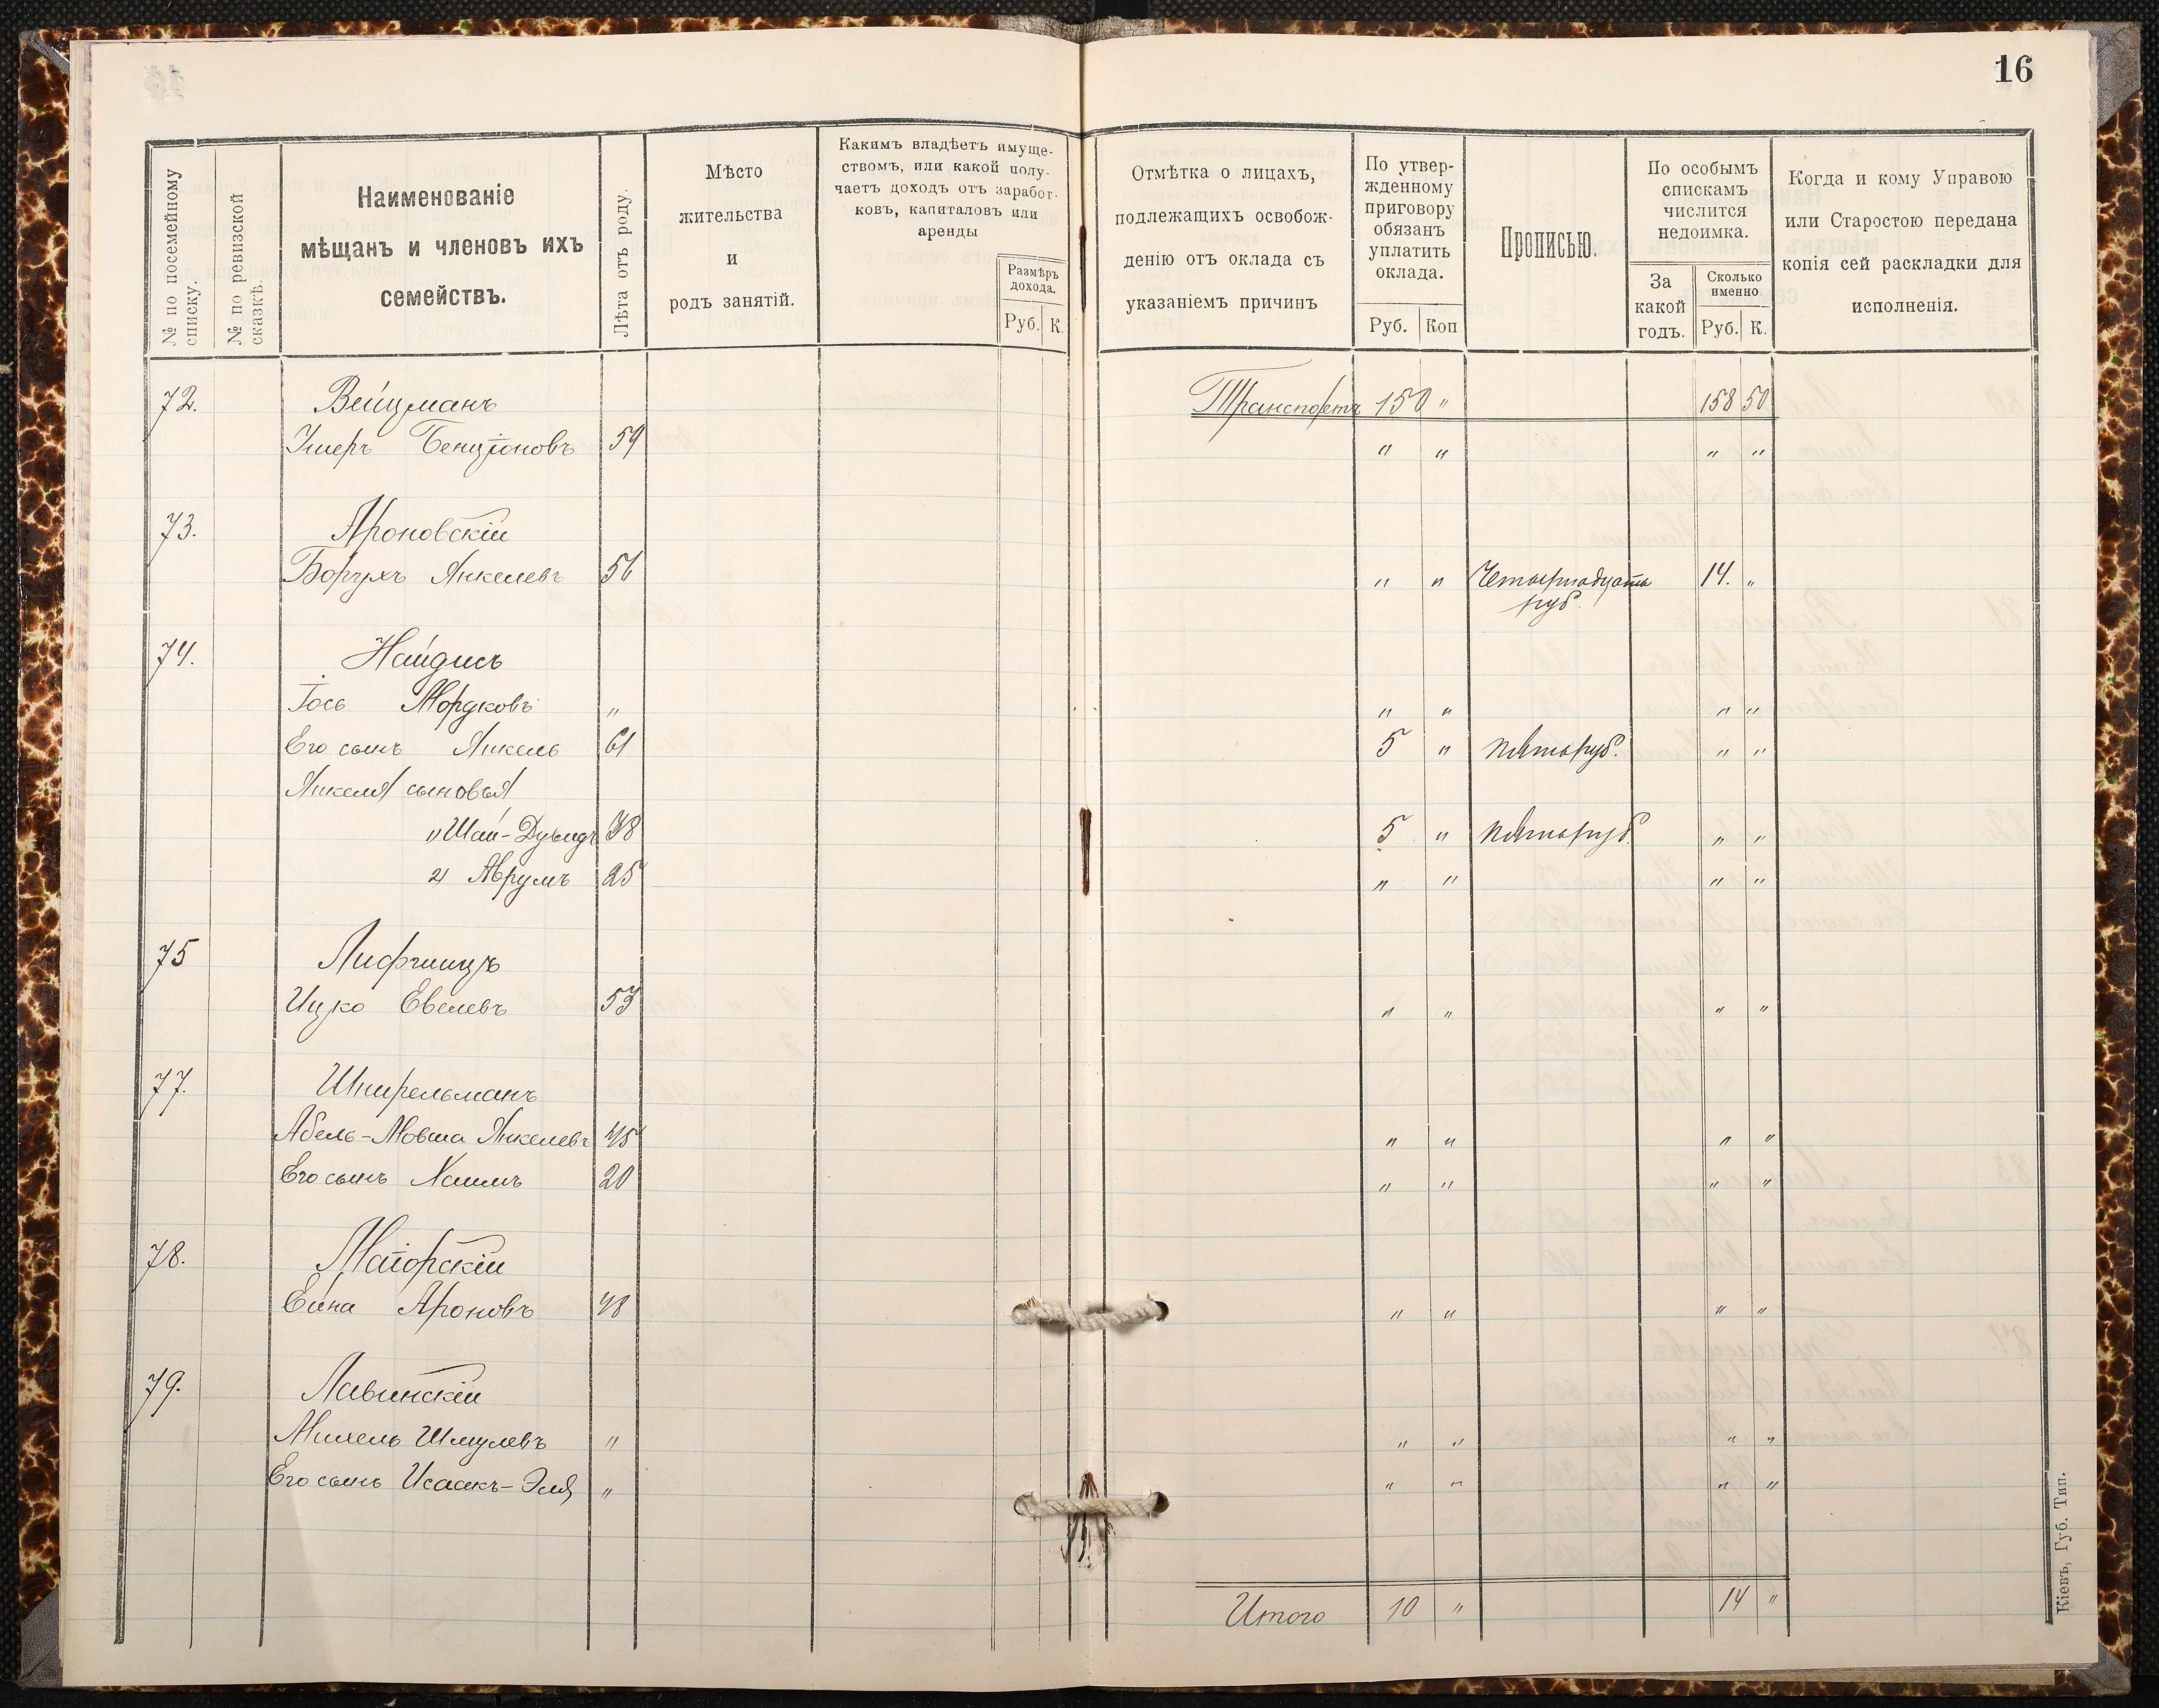 16
№ по посемейному списку.
№ по ревизской сказкѣ.
Наименованіе
мѣщанъ и членовъ ихъ
семействъ.
Лѣта отъ роду.
Мѣсто
жительства
и
родъ занятій.
Какимъ владѣетъ имуще-
ствомъ, или какой полу-
чаетъ доходъ отъ заработ-
ковъ, капиталовъ или
аренды
Размѣръ
дохода.
Руб. К.
Отмѣтка о лицахъ,
подлежащихъ освобож-
денію отъ оклада съ
указаніемъ причинъ
По утвер-
жденному
приговору
обязанъ
уплатить
оклада.
Руб. Коп
Прописью.
По особымъ
спискамъ
числится
недоимка.
За
какой
годъ.
Сколько
именно
Руб. К.
Когда и кому Управою
или Старостою передана
копія сей раскладки для
исполненія.
72. Вейцманъ Транспортъ 150 " 158 50
Ушеръ Бенціоновъ 59 " " " "
73. Ароновскій
Борухъ Янкелевъ 56 " " Четырнадцать 14. "
руб.
74. Найдисъ
Іось Мордковъ " " " " "
Его сынъ Янкель 61 5 " пять руб. " "
Янкеля сыновья
1) Шай-Дувидъ 38 5 " пять руб. " "
2) Аврумъ 25 " " " "
75 Лифшицъ
Ицко Евелевъ 53 " " " "
77. Шнирельманъ
Абель-Мовша Янкелевъ 45 " " " "
Его сынъ Хаимъ 20 " " " "
78. Маіорскій
Ейна Ароновъ 48 " " " "
79. Лавинскій
Михель Шмулевъ " " " " "
Его сынъ Исаакъ-Эля " " " " "
Итого 10 " 14 "
Кіевъ, Губ. Тип.